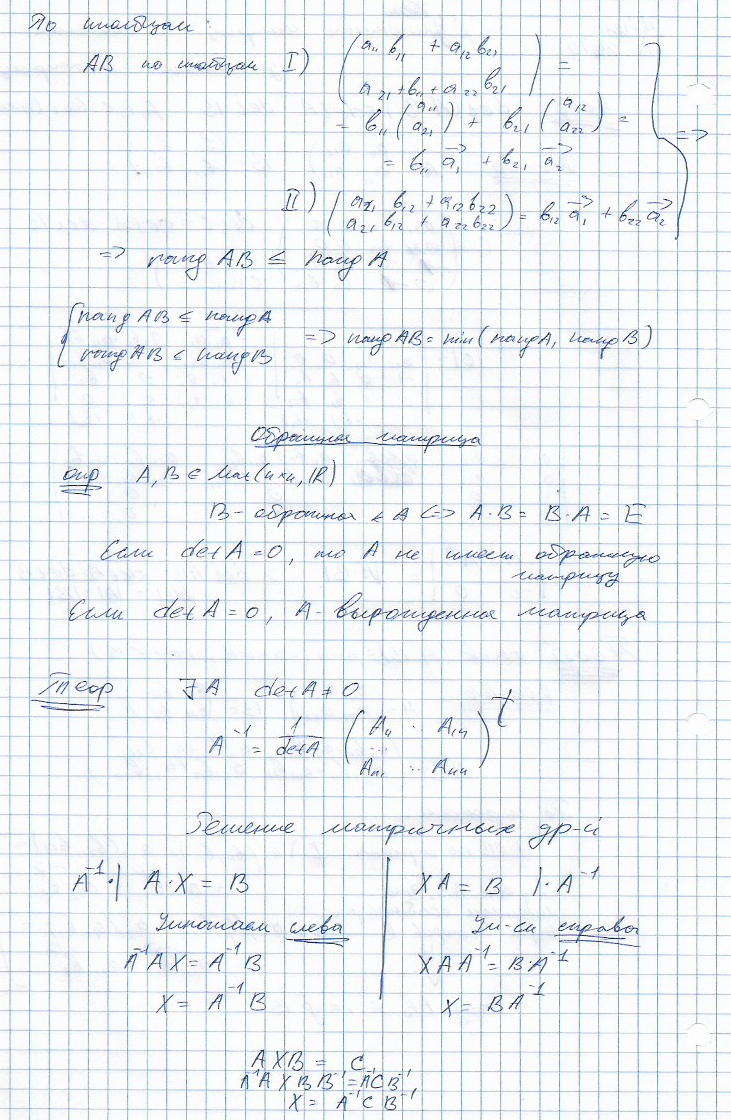 По столбцам:
AB по столбцам I) (a₁₁ b₁₁ + a₁₂ b₂₁
a₂₁ + b₁₁ + a₂₂ b₂₁) =
= b₁₁ (a₁₁ a₂₁) + b₂₁ (a₁₂ a₂₂) = =>
= b₁₁ a₁→ + b₂₁ a₂→
II) (a₁₁ b₁₂ + a₁₂ b₂₂
a₂₁ b₁₂ + a₂₂ b₂₂) = b₁₂ a₁→ + b₂₂ a₂→
=> rang AB ≤ rang A
{ rang AB ≤ rang A
rang AB ≤ rang B => rang AB = min(rang A, rang B)
Обратная матрица
опр A, B ∈ Mat(n×n, ℝ)
B - обратная к A <=> A·B = B·A = E
Если det A = 0, то A не имеет обратную
матрицу
Если det A = 0, A - вырожденная матрица
Теор ∃ A det A ≠ 0
A⁻¹ = 1/det A (A₁₁ ·· A₁ₙ
...
Aₙ₁ ·· Aₙₙ)ᵗ
Решение матричных ур-й
A⁻¹·| A·X = B
XA = B |·A⁻¹
Умножаем слева
Ум-ем справа
A⁻¹AX = A⁻¹B
XAA⁻¹ = B·A⁻¹
X = A⁻¹B
X = BA⁻¹
AXB = C
A⁻¹AXBB⁻¹ = A⁻¹CB⁻¹
X = A⁻¹CB⁻¹